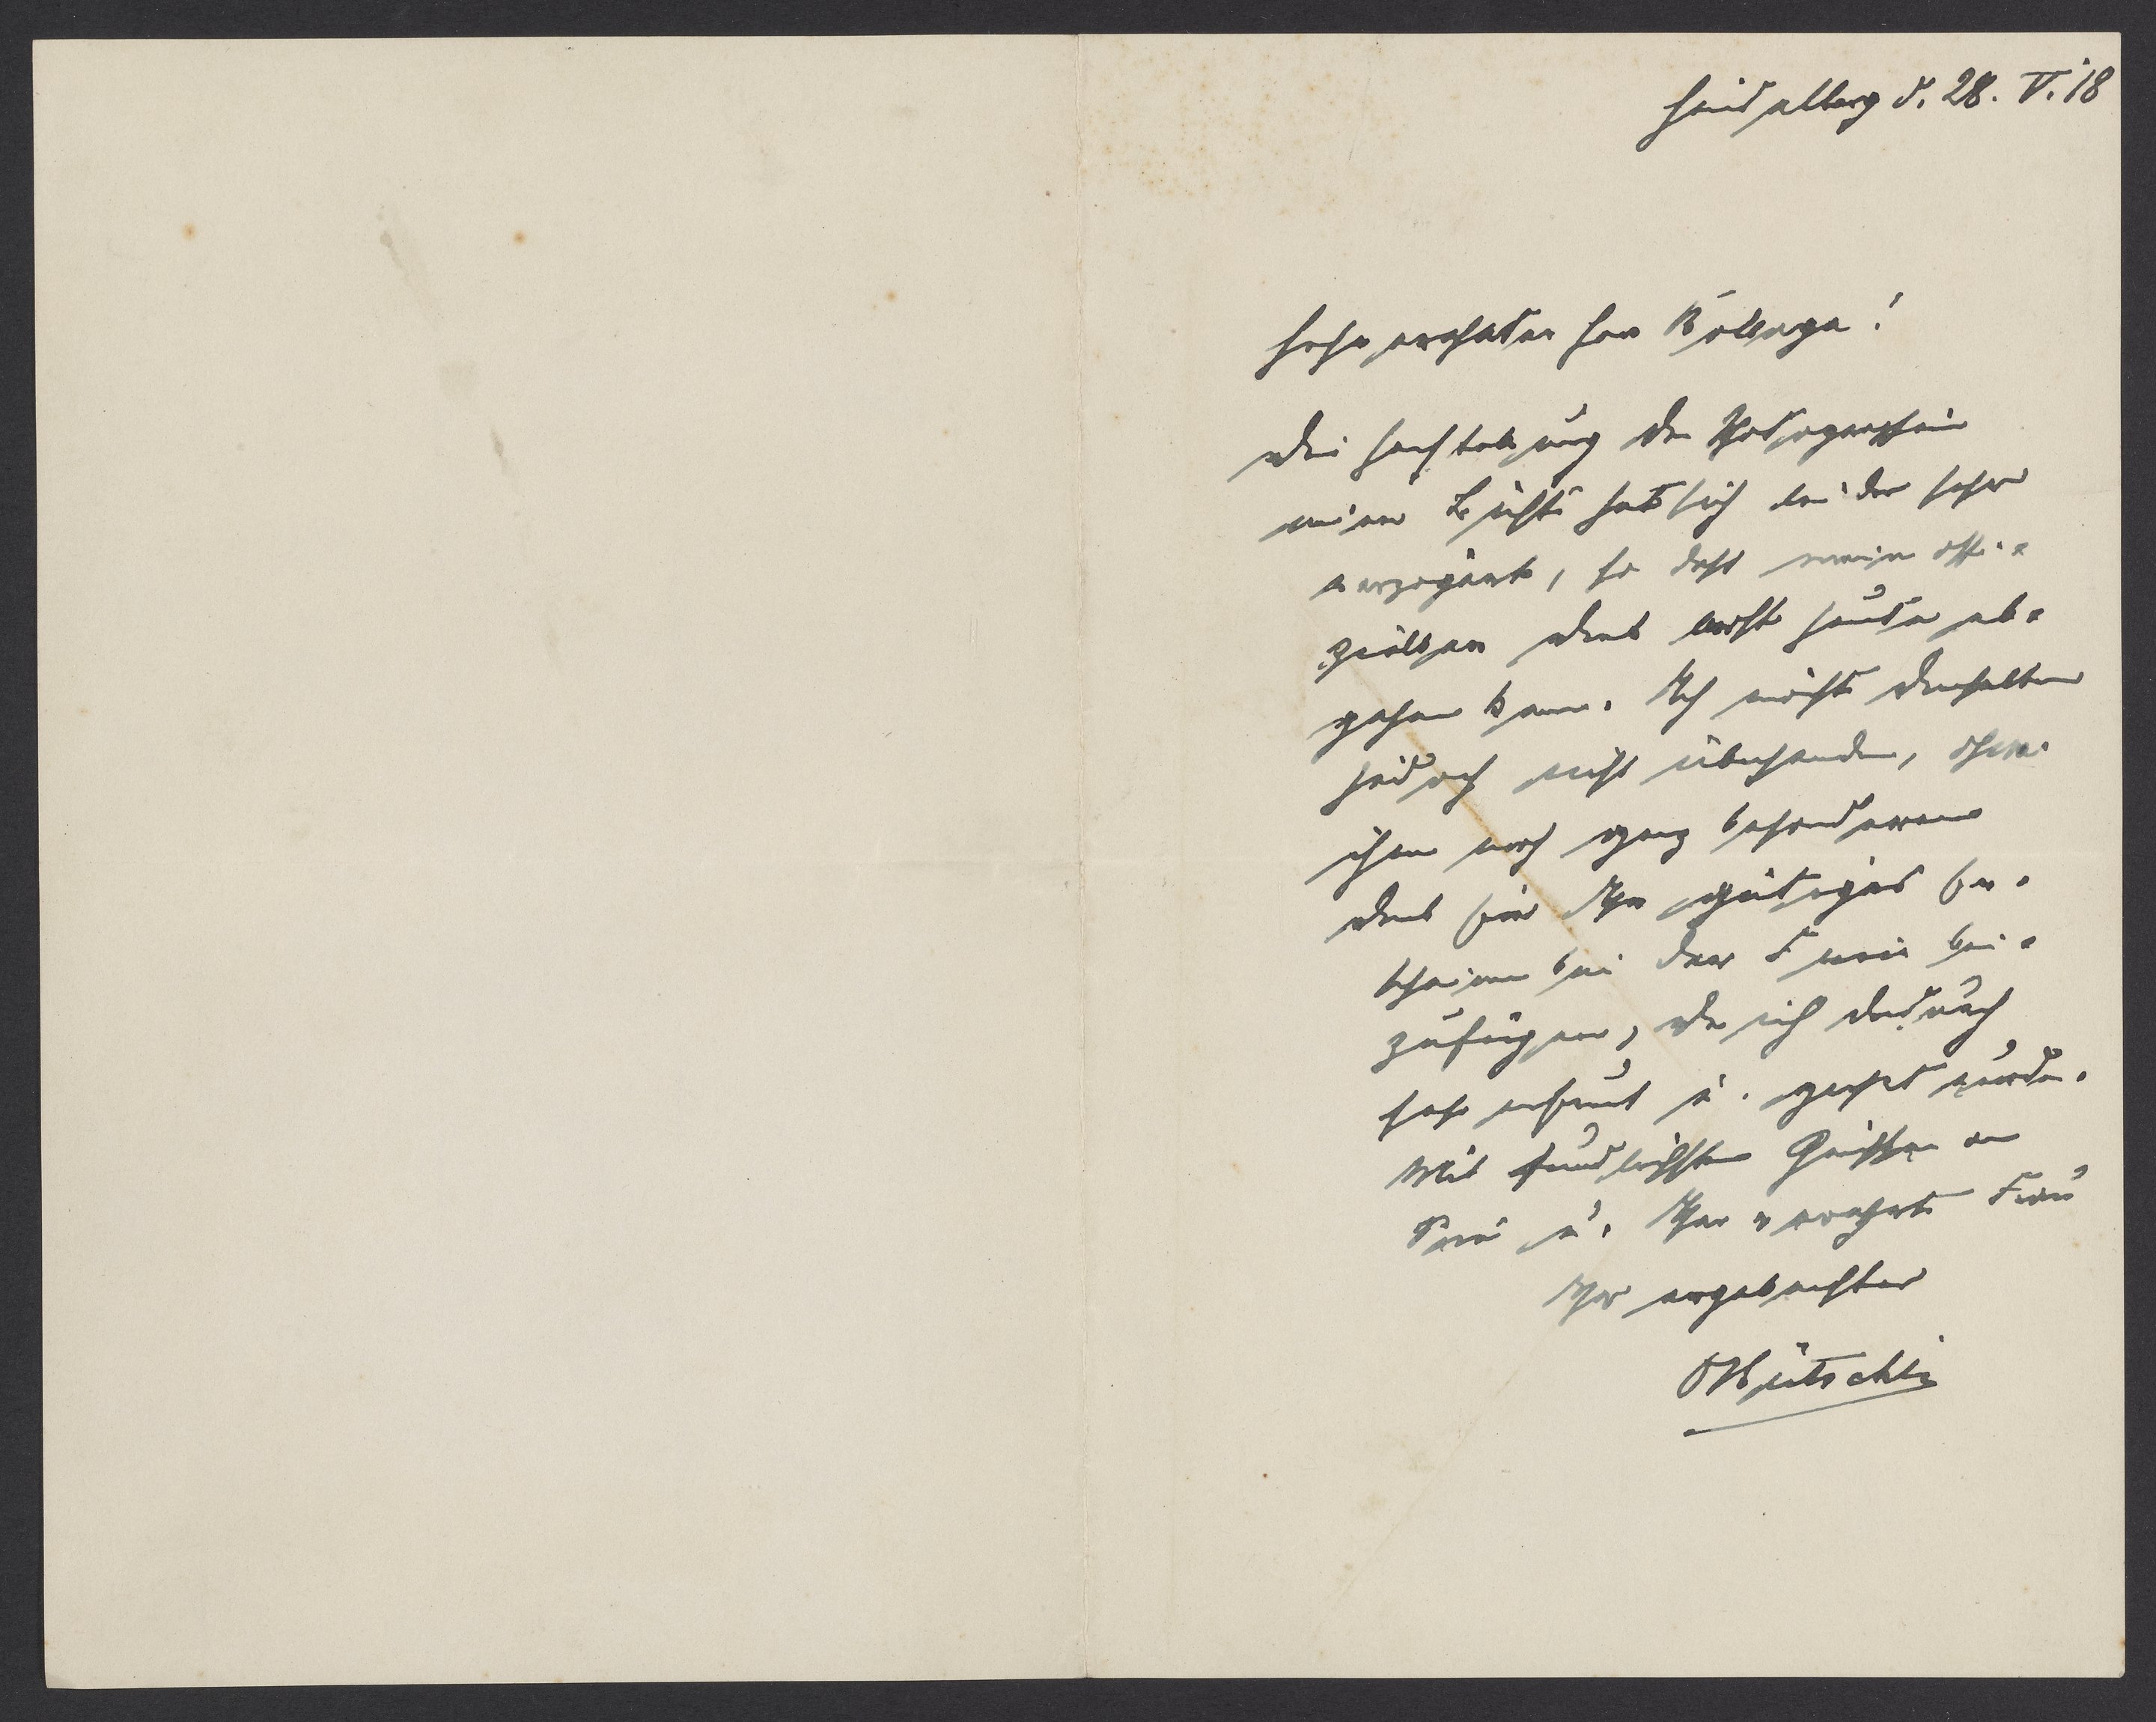 Heidelberg d. 28. V. 18
Sehr verehrter Herr Kollege!
Die Herstellung der Photographie
meiner Büste hat sich leider sehr
verzögert, so daß mein offi-
zieller Dank erst heute ab-
gehen kann. Ich möchte denselben
jedoch nicht übersenden, ohne
ihm noch ganz besonderen
Dank für Ihr gütiges Er-
scheinen bei der Feier bei-
zufügen, der mich dadurch
sehr erfreut u. geehrt wurde.
Mit freundlichsten Grüßen an
Sie u. Ihre verehrte Frau
Ihr ergebenster
OBütschli